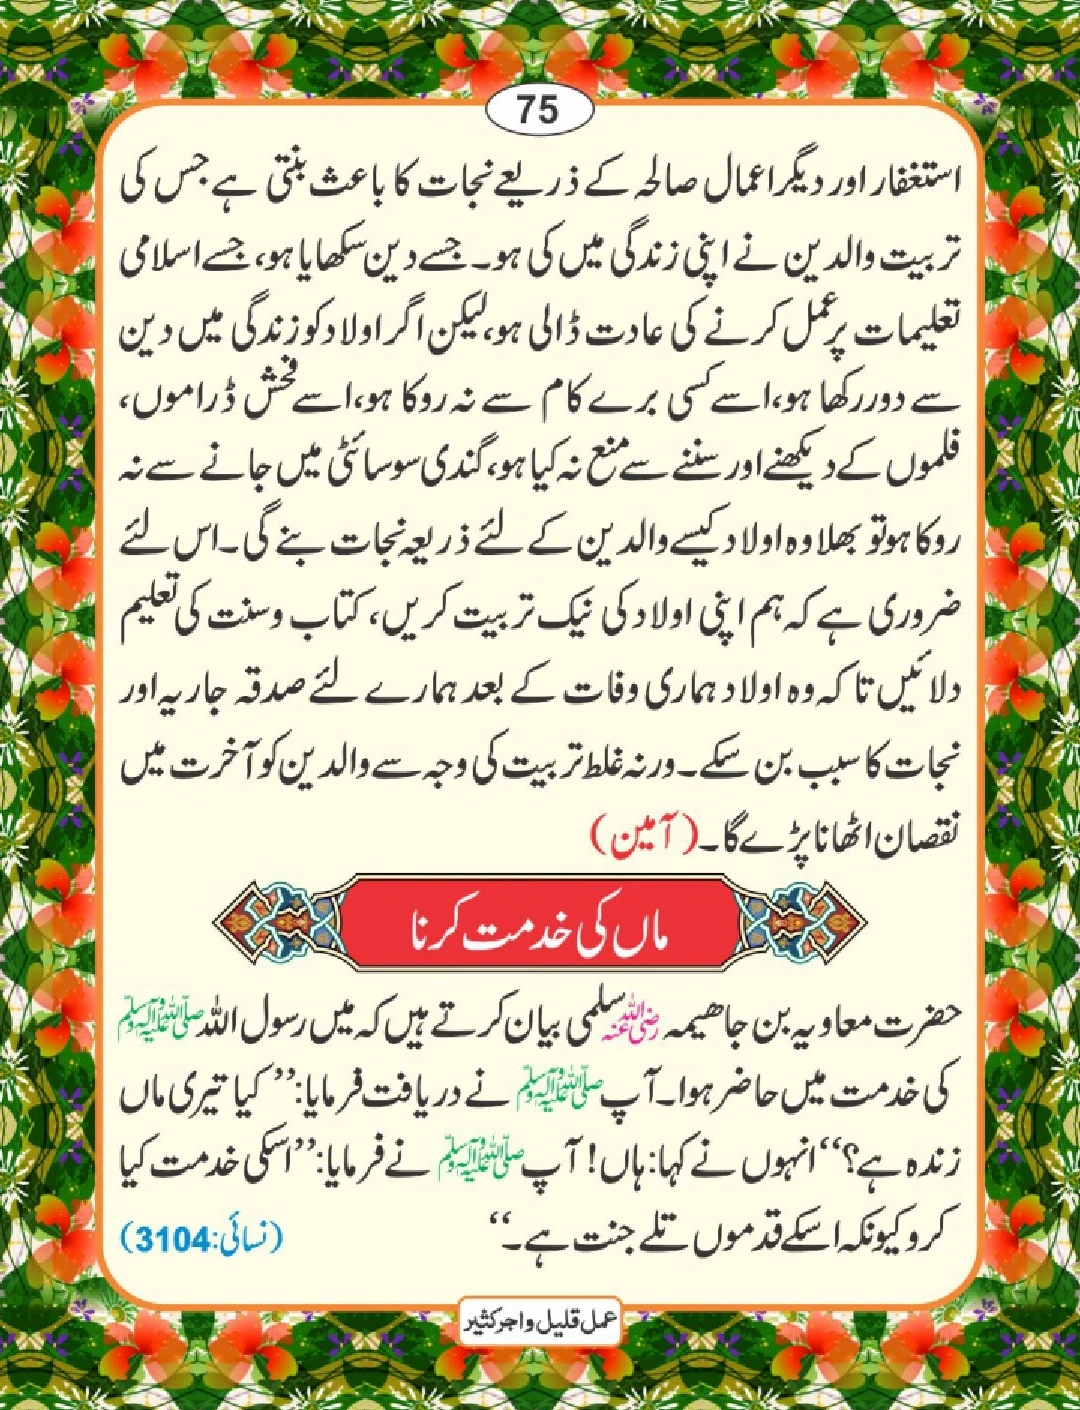 75
استغفار اور دیگر اعمال صالحہ کے ذریعے نجات کا باعث بنتی ہے جس کی
تربیت والدین نے اپنی زندگی میں کی ہو۔ جسے دین سکھایا ہو، جسے اسلامی
تعلیمات پر عمل کرنے کی عادت ڈالی ہو، لیکن اگر اولاد کو زندگی میں دین
سے دور رکھا ہو، اسے کسی برے کام سے نہ روکا ہو، اسے فحش ڈراموں،
فلموں کے دیکھنے اور سننے سے منع نہ کیا ہو، گندی سوسائٹی میں جانے سے نہ
روکا ہو تو بھلا وہ اولاد کیسے والدین کے لئے ذریعہ نجات بنے گی۔ اس لئے
ضروری ہے کہ ہم اپنی اولاد کی نیک تربیت کریں، کتاب وسنت کی تعلیم
دلائیں تا کہ وہ اولاد ہماری وفات کے بعد ہمارے لئے صدقہ جاریہ اور
نجات کا سبب بن سکے۔ ورنہ غلط تربیت کی وجہ سے والدین کو آخرت میں
نقصان اٹھانا پڑے گا۔ (آمین)
ماں کی خدمت کرنا
حضرت معاویہ بن جاھیمہ رضی اللہ عنہ سلمی بیان کرتے ہیں کہ میں رسول اللہ ﷺ
کی خدمت میں حاضر ہوا۔ آپ ﷺ نے دریافت فرمایا: ’’کیا تیری ماں
زندہ ہے؟‘‘ انہوں نے کہا: ہاں! آپ ﷺ نے فرمایا: ’’اسکی خدمت کیا
کرو کیونکہ اسکے قدموں تلے جنت ہے۔‘‘ (نسائی: 3104)
عمل قلیل و اجر کثیر